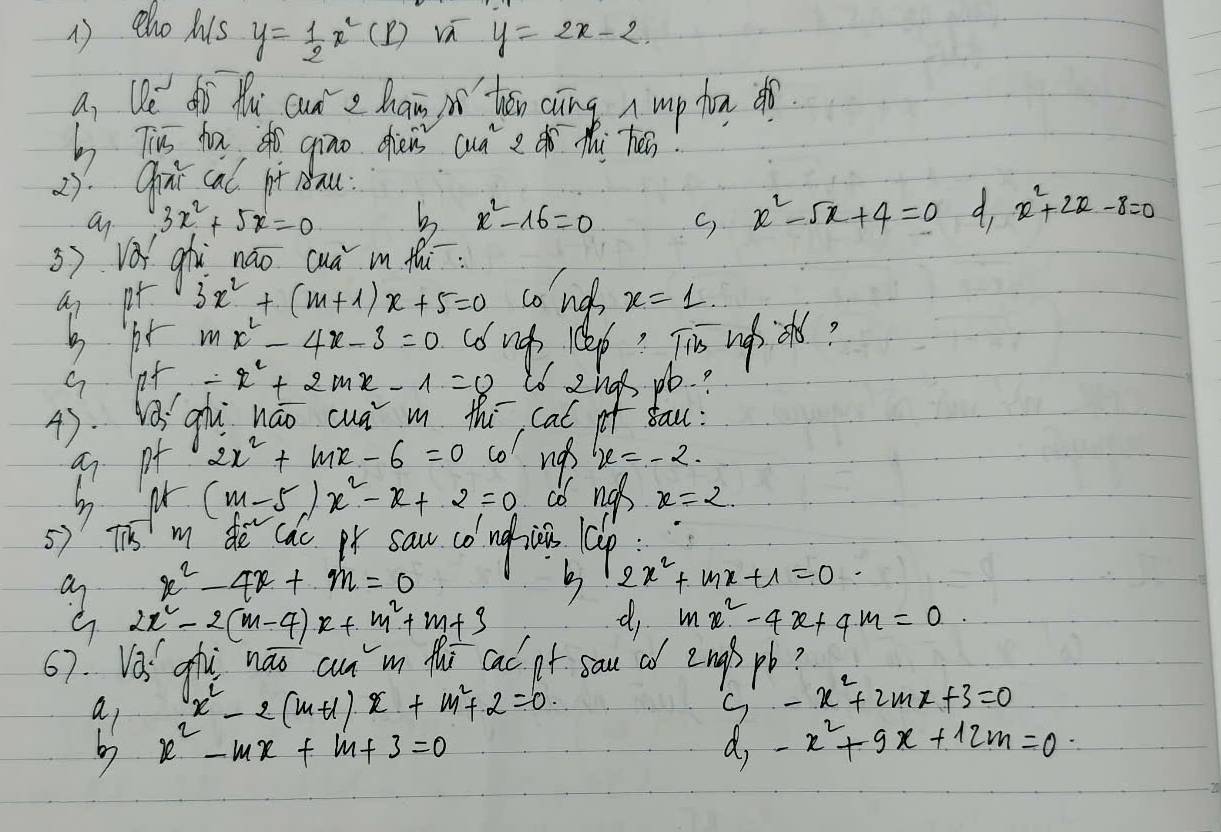 1) Cho h/s y = 1/2 x² (P) và y = 2x - 2.
a, Vẽ đồ thị của 2 hàm số trên cùng 1 mp toạ độ.
b, Tìm toạ độ giao điểm của 2 đồ thị trên.
2). Giải các pt sau:
a, 3x² + 5x = 0 b, x² - 16 = 0 c, x² - 5x + 4 = 0 d, x² + 2x - 8 = 0
3) Với gtrị nào của m thì:
a, pt 3x² + (m+1)x + 5 = 0 có ngh x = 1.
b, pt mx² - 4x - 3 = 0 có ngh kép? Tìm ngh đó?
c, pt - x² + 2mx - 1 = 0 có 2 ngh pb?
4). Với gtrị nào của m thì các pt sau:
a, pt 2x² + mx - 6 = 0 có ngh x = -2.
b, pt (m - 5)x² - x + 2 = 0 có ngh x = 2.
5) Tìm m để các pt sau có nghiệm kép:
a, x² - 4x + m = 0 b, 2x² + mx + 1 = 0.
c, 2x² - 2(m-4)x + m² + m + 3 d, mx² - 4x + 4m = 0.
6). Với gtrị nào của m thì các pt sau có 2 ngh pb?
a, x² - 2(m+1)x + m² + 2 = 0. c, - x² + 2mx + 3 = 0
b, x² - mx + m + 3 = 0 d, - x² + 9x + 12m = 0.